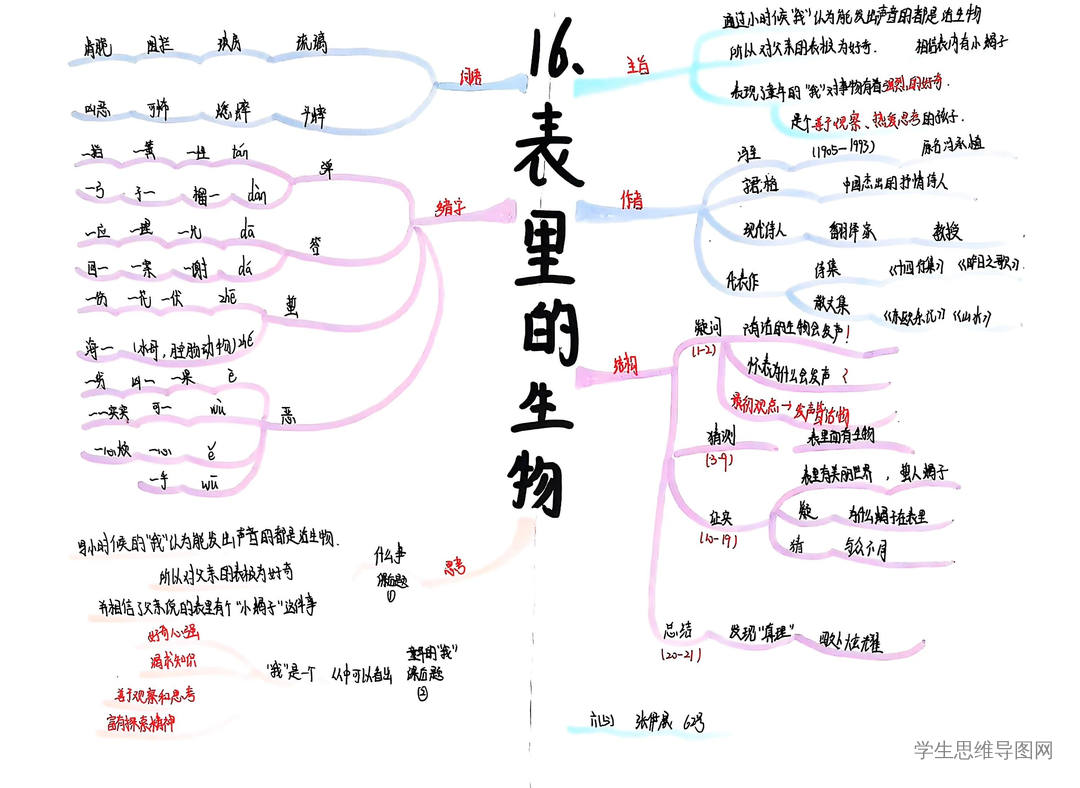 16、表里的生物
主旨
通过小时候"我"认为能发出声音的都是活生物
所以对父亲的表极为好奇. 相信表内有小蝎子
表现了童年的"我"对事物有着强烈的好奇.
是个善于观察、热爱思考的孩子.
作者
冯至 (1905—1993) 原名冯承植
字君植 中国杰出的抒情诗人
现代诗人 翻译家 教授
代表作
诗集 《十四行集》 《昨日之歌》
散文集 《东欧杂记》 《山水》
结构
疑问 (1-2)
有活的生物会发声!
怀表为什么会发声?
最初观点→发声皆活物
猜测 (3-9) 表里面有生物
证实 (10-19)
表里有美丽世界, 蜇人蝎子
疑 为什么蝎子在表里
猜
总结 (20-21) 发现"真理" 四处炫耀
词语
清脆 阻拦 玻璃
可怖
缩字
弹
一黄 一性 tán
一弓 子一 榴一 dàn
答
一应 一理 一允 dā
回一 一案 一谢 dá
蜇
一伤 一伏 zhē
海一 (水母,腔肠动物) zhé
恶
一劣 凶一 一果 è
可一 wù
一心 ě
一乎 wū
思考
什么事 课后题①
因小时候的"我"认为能发出声音的都是活生物.
所以对父亲的表极为好奇
并相信了父亲说的表里有个"小蝎子"这件事
童年的"我" 课后题②
从中可以看出 "我"是一个
好奇心强
渴求知识
善于观察和思考
富有探索精神
62号
学生思维导图网